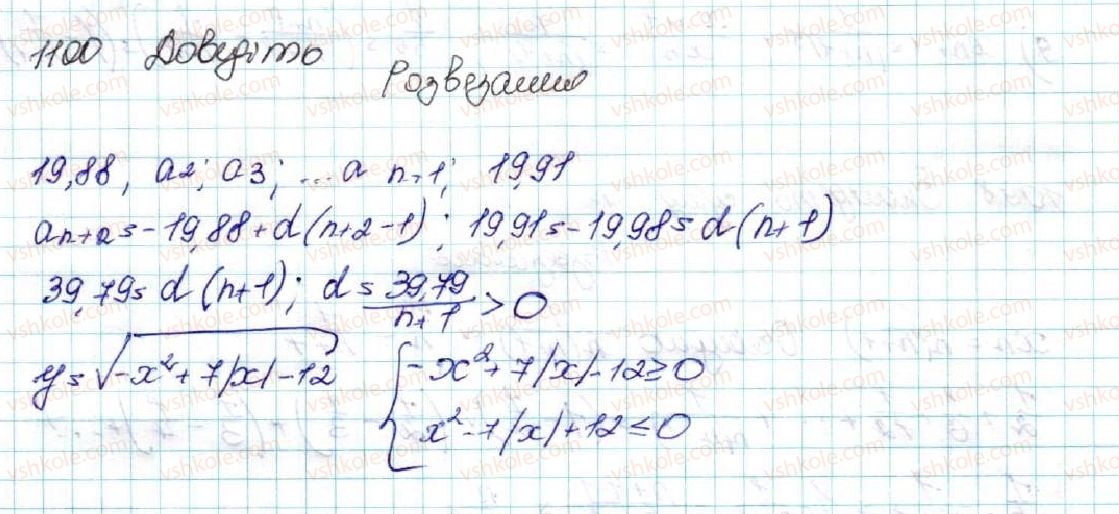 1100 Доведіть
Розвезання
19,88, a2; a3; ...a n+1; 19,91
an+2 = -19,88 + d(n+2-1); 19,91 = -19,98 = d(n+1)
39,79 = d(n+1); d = 39,79/(n+1) > 0
y = √(-x² + 7|x| - 12) { -x² + 7|x| - 12 ≥ 0
x² - 7|x| + 12 ≤ 0